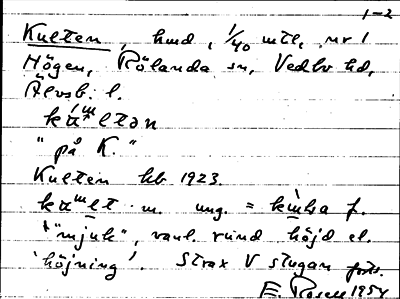 1-2
Kulten, hmd, 1/40 mtl, nr 1
Högen, Rölanda sn, Vedbo hd,
Älvsb. l.
"på K."
Kulten hb 1923.
m. ung. = f.
"mjuk", vanl. rund höjd el.
'höjning'. Strax V stugan forts.
E. Rosell 1954